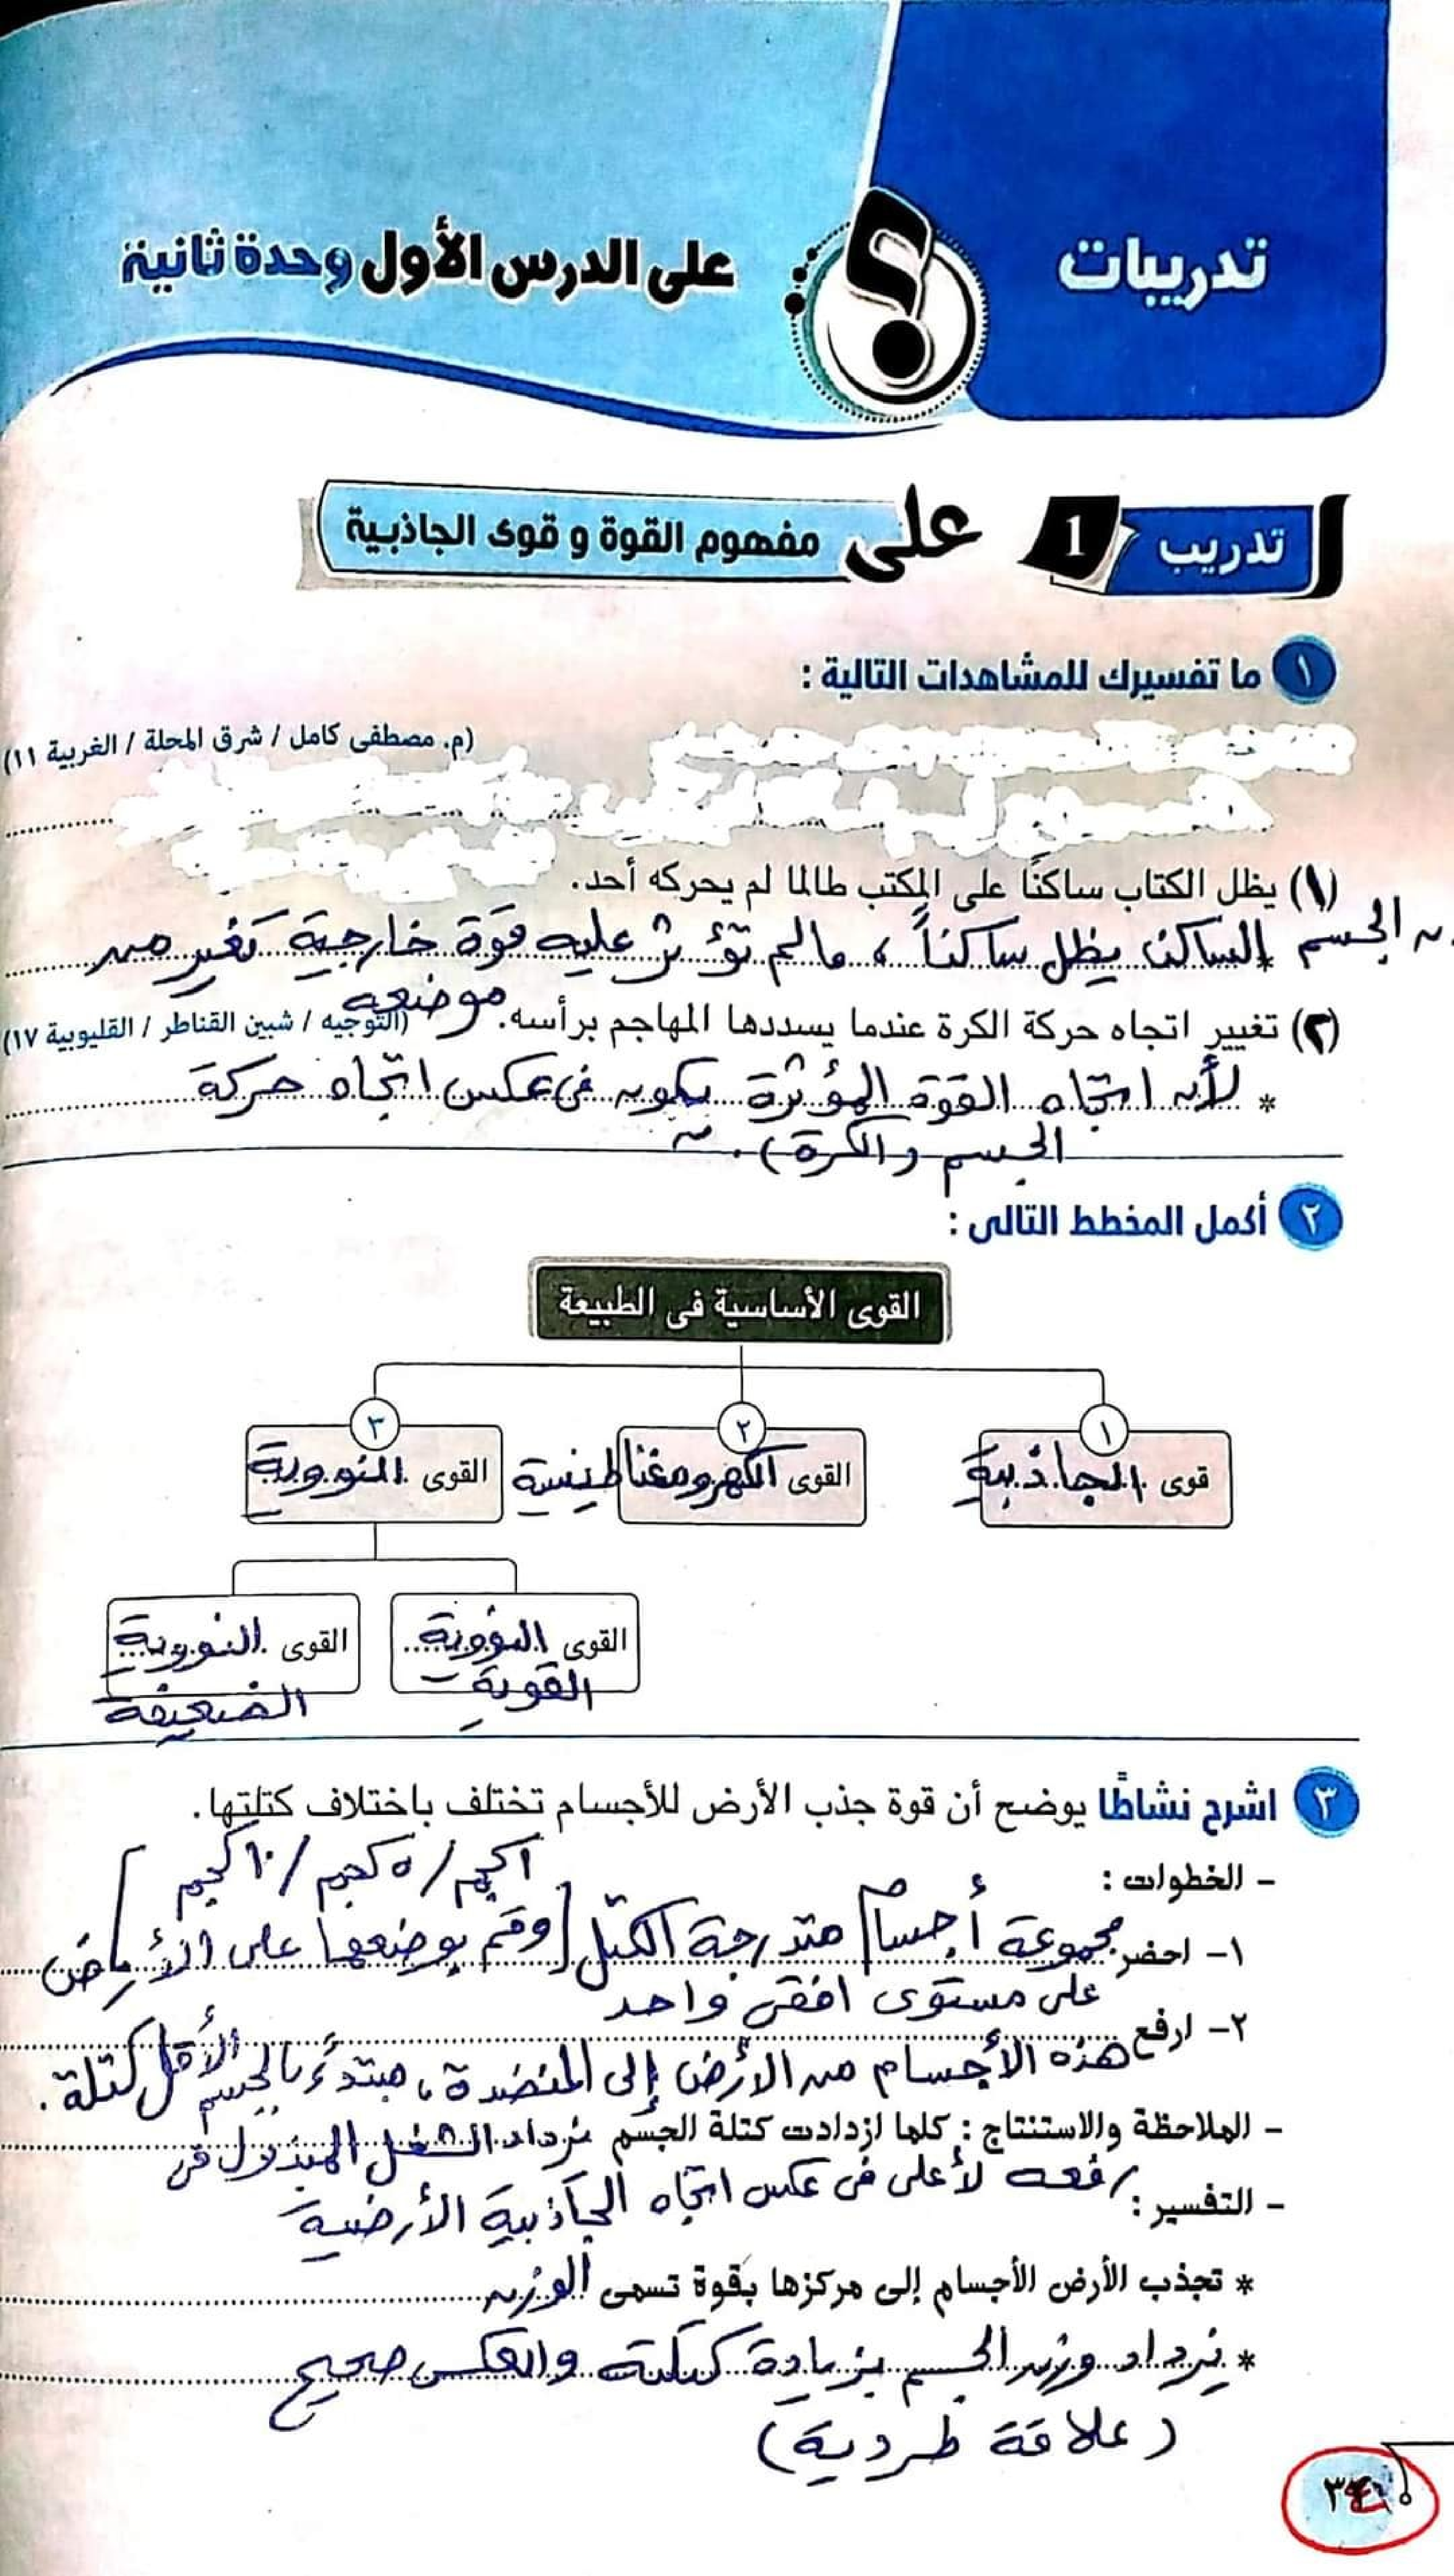 تدريبات
على الدرس الأول وحدة ثانية
تدريب 1 على مفهوم القوة و قوى الجاذبية
١ ما تفسيرك للمشاهدات التالية :
(م. مصطفى كامل / شرق المحلة / الغربية ١١)
(١) يظل الكتاب ساكنًا على المكتب طالما لم يحركه أحد.
الجسم الساكن يظل ساكناً ، مالم تؤثر عليه قوة خارجية تغير من
موضعه
(٢) تغيير اتجاه حركة الكرة عندما يسددها المهاجم برأسه. (التوجيه / شبين القناطر / القليوبية ١٧)
* لأن اتجاه القوة المؤثرة يكون فى عكس اتجاه حركة
الجسم (الكرة).
٢ أكمل المخطط التالى :
القوى الأساسية فى الطبيعة
١ ٢ ٣
قوى الجاذبية
القوى الكهرومغناطيسية
القوى النووية
القوى النووية القوية
القوى النووية الضعيفة
٣ اشرح نشاطًا يوضح أن قوة جذب الأرض للأجسام تختلف باختلاف كتلتها.
- الخطوات :
١كجم / ٥كجم / ١٠كجم
١- احضر مجموعة أجسام متدرجة الكتل [وقم بوضعها على الأرض]
على مستوى افقى واحد
٢- ارفع هذه الأجسام من الأرض إلى المنضدة، مبتدءً بالجسم الأقل كتلة.
- الملاحظة والاستنتاج : كلما ازدادت كتلة الجسم يزداد الشغل المبذول فى
رفعه لأعلى فى عكس اتجاه الجاذبية الأرضية
- التفسير :
* تجذب الأرض الأجسام إلى مركزها بقوة تسمى الوزن
* يزداد وزن الجسم بزيادة كتلته والعكس صحيح
(علاقة طردية)